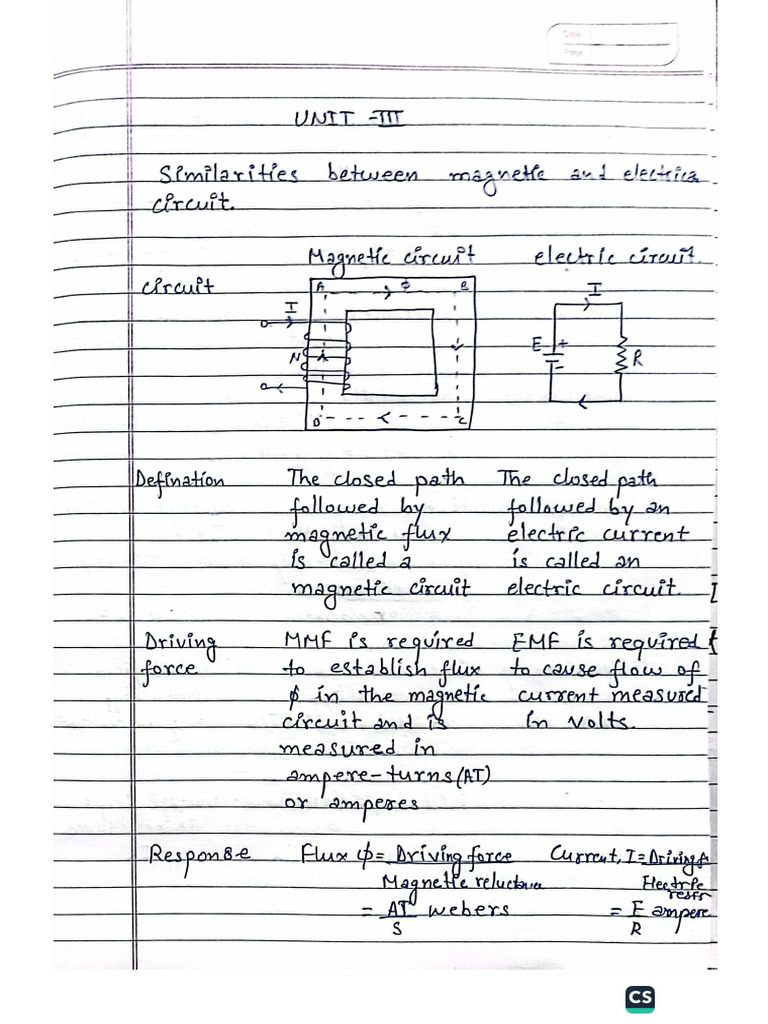 UNIT -III
Similarities between magnetic and electrica
circuit.
Magnetic circuit electric circuit.
circuit
A Φ B
I
N
D C
I
E + - R
Defination The closed path The closed path
followed by followed by an
magnetic flux electric current
is called a is called an
magnetic circuit electric circuit.
Driving MMF is required EMF is required
force to establish flux to cause flow of
ϕ in the magnetic current measured
circuit and is in volts.
measured in
ampere-turns (AT)
or amperes
Response Flux ϕ= Driving force Current, I = Driving f
Magnetic reluctance Electric
resis
= AT webers = E ampere
S R
CS